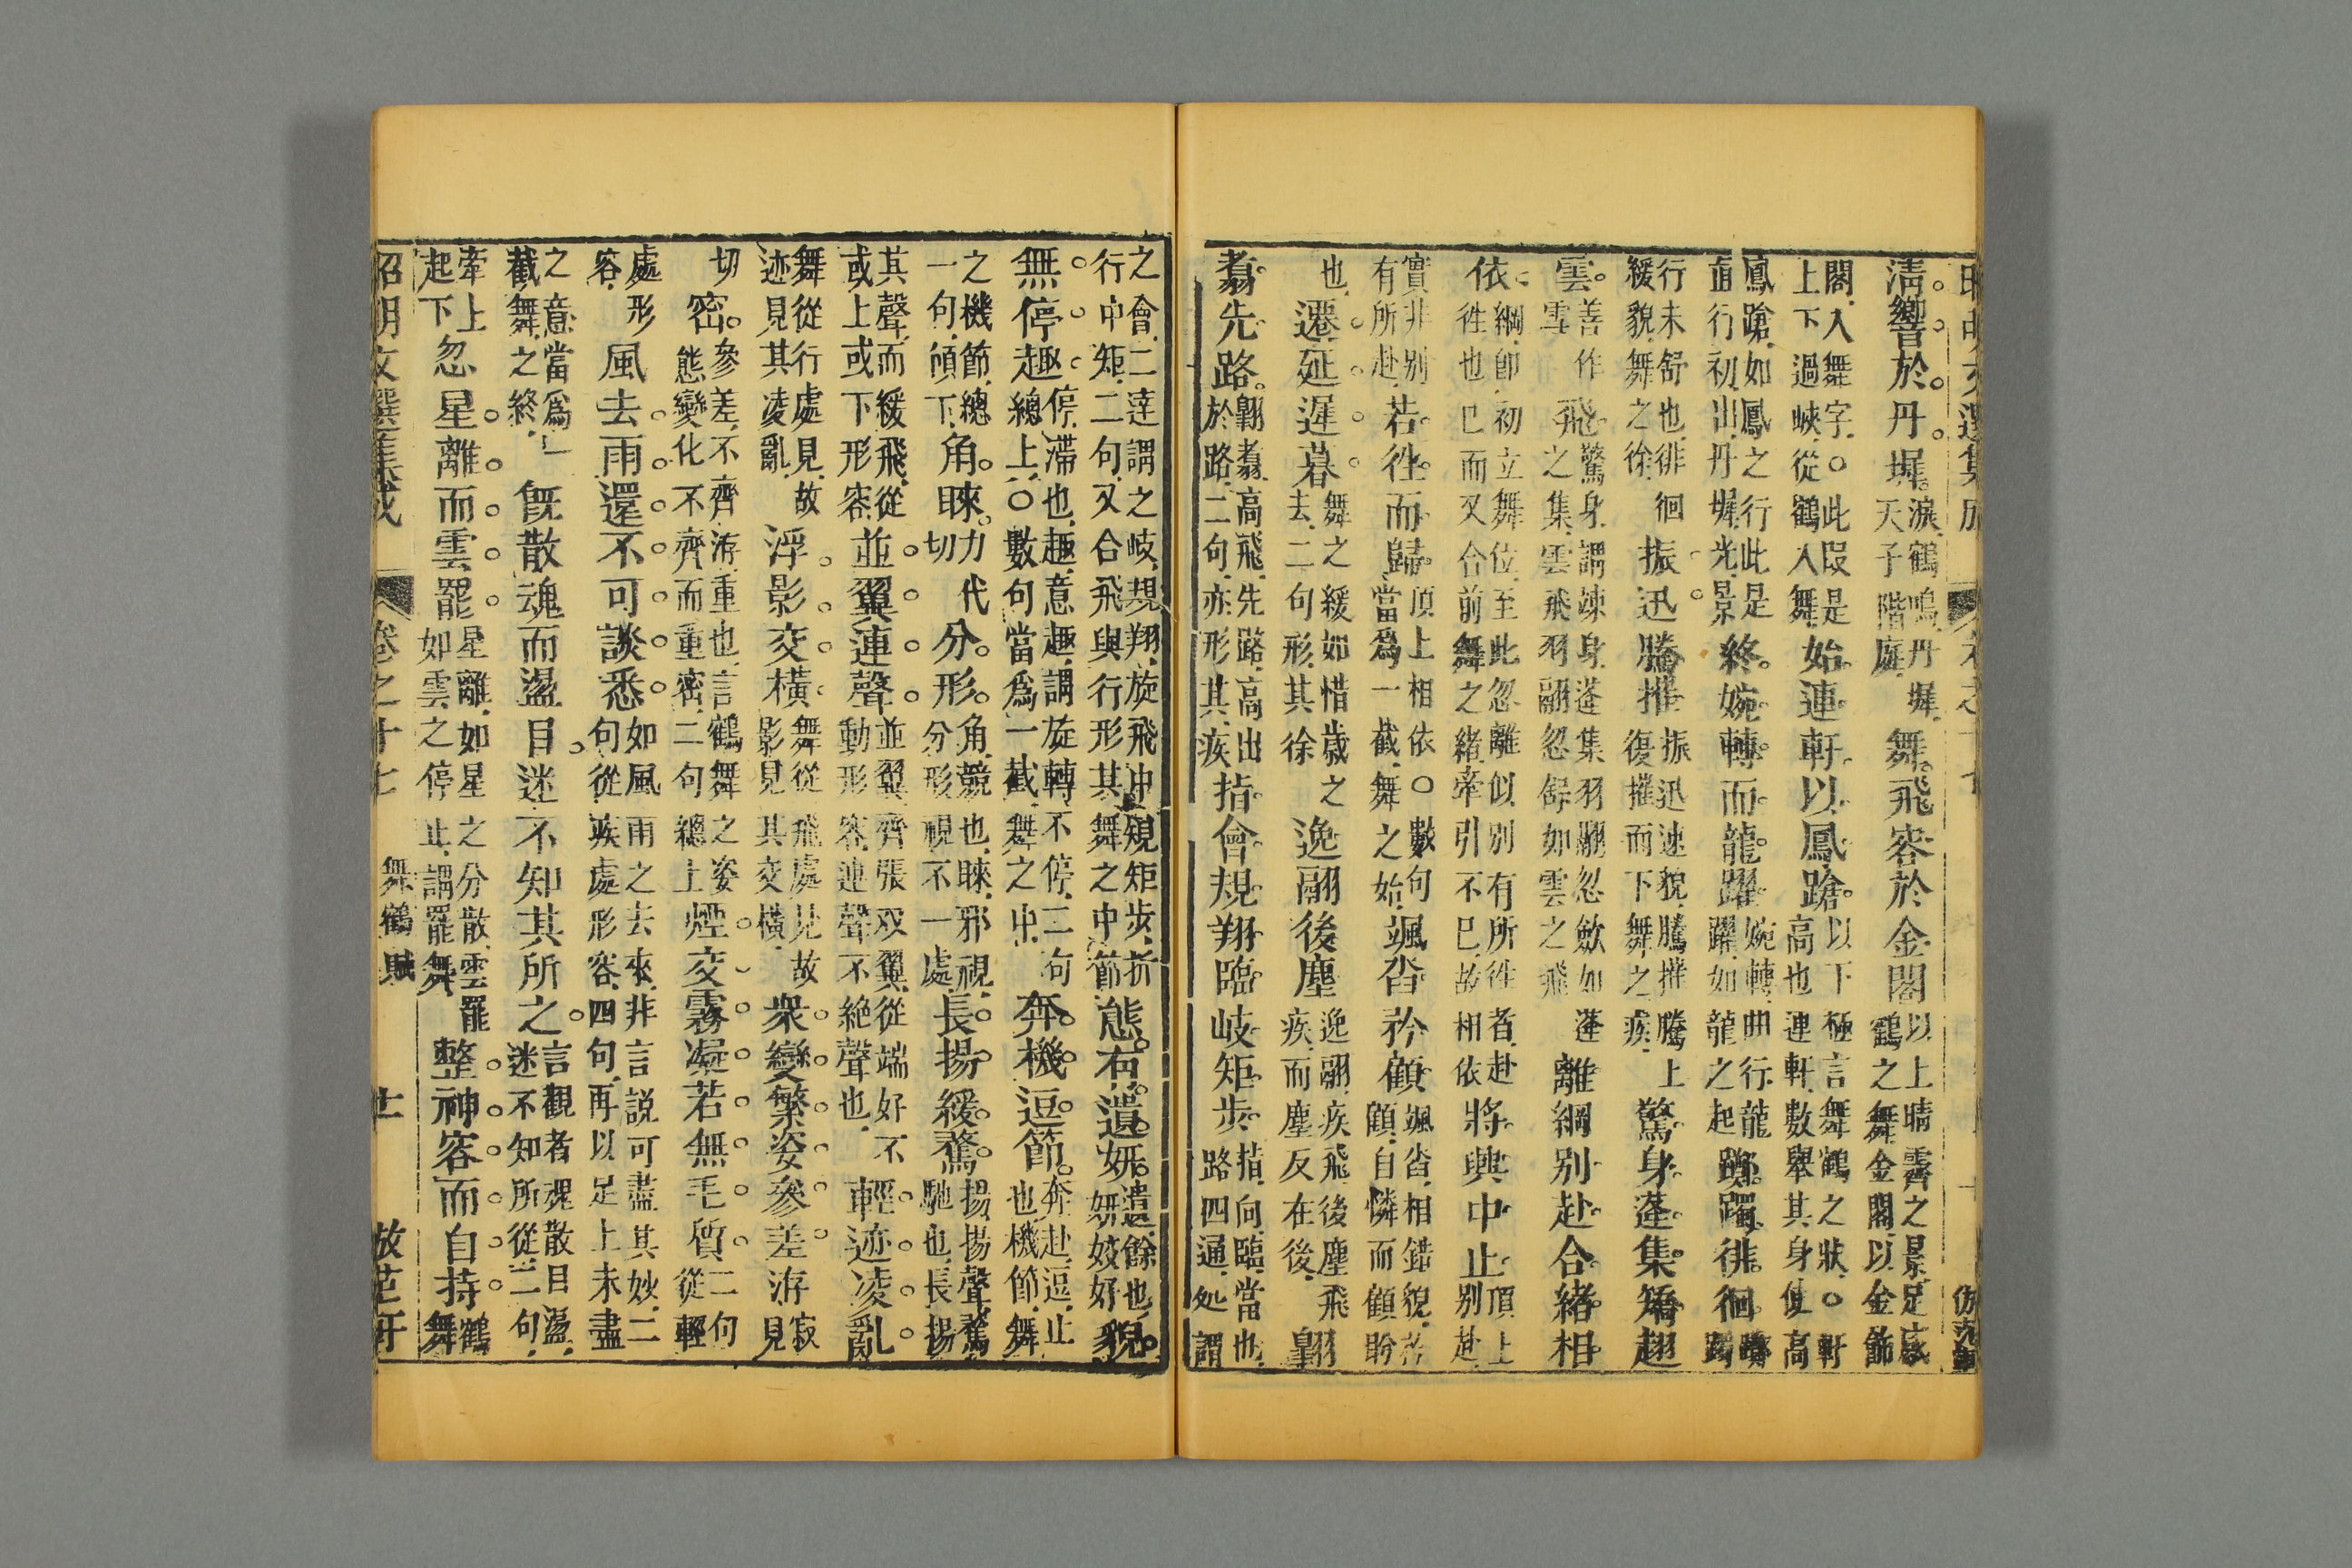 清響於丹墀 淚鶴鳴丹墀 天子階庭 舞飛容於金閣 以上晴霽之景足感 鶴之舞金閣以金飾
閣入舞字○此段是 上下過峽從鶴入舞 始連軒以鳳蹌 以下極言舞鶴之狀○軒 高也連軒數舉其身使高
鳳蹌如鳳之行此是 直行初出丹墀光景 終婉轉而龍躍 婉轉曲行龍 躍如龍之起 躑躅徘徊
行未舒也徘徊 緩貌舞之徐 振迅騰摧 振迅速貌騰摧騰上 復摧而下舞之疾 驚身蓬集矯翅
雲 善作 雪 飛 驚身謂竦身蓬集羽翮忽斂如蓬 之集雲飛羽翮忽舒如雲之飛 離綱別赴合緒相
依 綱節初立舞位至此忽離似別有所徃者赴 徃也已而又合前舞之緒牽引不已故相依 將興中止 頂上 別赴
實非別 有所赴 若徃而歸 頂上相依○數句 當為一截舞之始 颯沓矜顧 颯沓相錯貌矜 顧自憐而顧盼
也 遷延遲暮 舞之緩如惜歲之 去二句形其徐 逸翮後塵 逸翮疾飛後塵飛 疾而塵反在後 翱
翥先路 翱翥高飛先路高出 於路二句亦形其疾 指會規翔臨岐矩步 指向臨當也 路四通処謂
之會二達謂之岐規翔旋飛中規矩步折 行中矩二句又合飛與行形其舞之中節 態有遺妍 遺餘也 妍姣好 貌
無停趣 停滯也趣意趣謂旋轉不停二句 總上○數句當為一截舞之中 奔機逗節 奔赴逗止 也機節舞
之機節總 一句傾下 角睞 力代 切 分形 角競也睞邪視 分形視不一處 長揚緩騖 揚揚聲騖 馳也長揚
其聲而緩飛從 或上或下形容 並翼連聲 並翼齊張双翼從端好不 動形容連聲聲不絶聲也 輕迹凌亂
舞從行處見故 迹見其凌亂 浮影交橫 舞從飛處見故 影見其交橫 衆變繁姿參差洊 寂 見
切 密 參差不齊洊重也言鶴舞之姿 態變化不齊而重密二句總上 煙交霧凝若無毛質 二句 從輕
處形 容 風去雨還不可談悉 如風雨之去來非言説可盡其妙二 句從疾處形容四句再以足上未盡
之意當為一 截舞之終 旣散魂而盪目迷不知其所之 言觀者魂散目盪 迷不知所從二句
牽上 起下 忽星離而雲罷 星離如星之分散雲罷 如雲之停止謂罷舞 整神容而自持 鶴 舞
昭明文選集成 卷之十七 舞鶴賦 十一 倣范軒